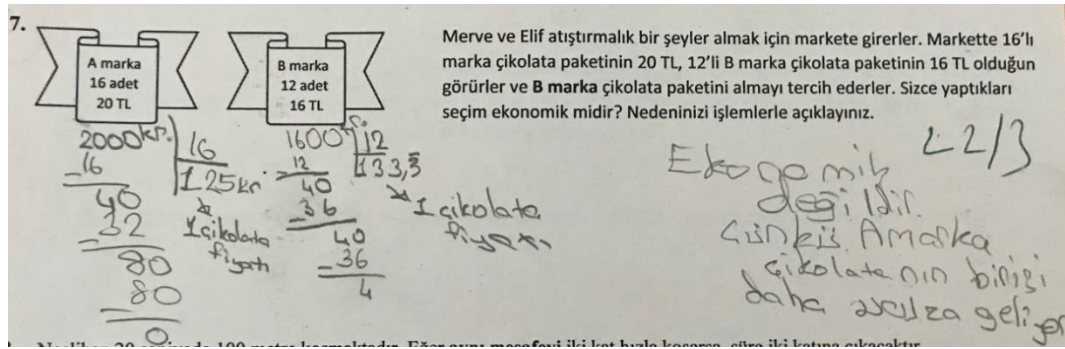 7.
A marka
16 adet
20 TL
B marka
12 adet
16 TL
Merve ve Elif atıştırmalık bir şeyler almak için markete girerler. Markette 16'lı
marka çikolata paketinin 20 TL, 12'li B marka çikolata paketinin 16 TL olduğun
görürler ve B marka çikolata paketini almayı tercih ederler. Sizce yaptıkları
seçim ekonomik midir? Nedeninizi işlemlerle açıklayınız.
2000kr. 16
-16 125kr
40
-32
80
-80
0
1 çikolata
fiyatı
1600 12
12 133,3
40
-36
40
-36
4
1 çikolata
fiyatı
22/3
Ekonomik
değildir.
Çünkü A marka
çikolatanın birisi
daha ucuza geliyor